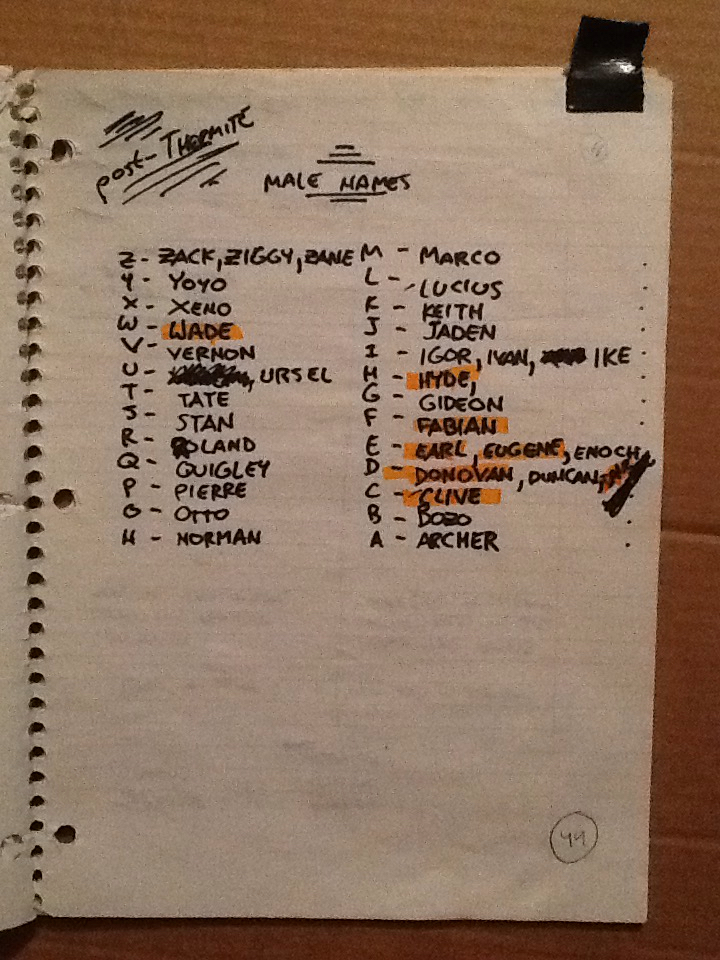 post-THERMITE
MALE NAMES
Z - ZACK, ZIGGY, ZANE
Y - YOYO
X - XENO
W - WADE
V - VERNON
U - , URSEL
T - TATE
S - STAN
R - ROLAND
Q - QUIGLEY
P - PIERRE
O - OTTO
N - NORMAN
M - MARCO
L - LUCIUS
K - KEITH
J - JADEN
I - IGOR, IVAN, IKE
H - HYDE,
G - GIDEON
F - FABIAN
E - EARL, EUGENE, ENOCH
D - DONOVAN, DUNCAN,
C - CLIVE
B - BOZO
A - ARCHER
44